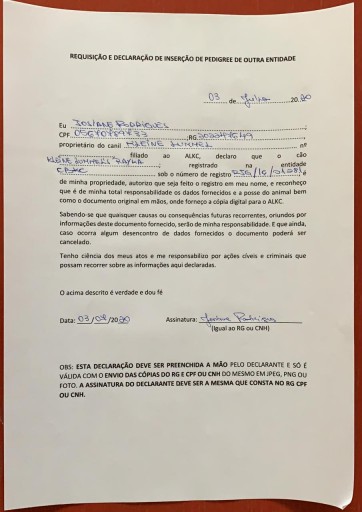 REQUISIÇÃO E DECLARAÇÃO DE INSERÇÃO DE PEDIGREE DE OUTRA ENTIDADE
03 de Julho 2020
Eu JOSIANE RODRIGUES
CPF RG
proprietário do canil KLEINE HUMMEL nº
filiado ao ALKC, declaro que o cão
KLEINE HUMMEL'S registrado na entidade
CBKC sob o número de registro é
de minha propriedade, autorizo que seja feito o registro em meu nome, e reconheço
que é de minha total responsabilidade os dados fornecidos e a posse do animal bem
como o documento original em mãos, onde forneço a cópia digital para o ALKC.
Sabendo-se que quaisquer causas ou consequências futuras recorrentes, oriundos por
informações deste documento fornecido, serão de minha responsabilidade. E que ainda,
caso ocorra algum desencontro de dados fornecidos o documento poderá ser
cancelado.
Tenho ciência dos meus atos e me responsabilizo por ações cíveis e criminais que
possam recorrer sobre as informações aqui declaradas.
O acima descrito é verdade e dou fé
Data: 03/07/2020 Assinatura: Josiane Rodrigues
(Igual ao RG ou CNH)
OBS: ESTA DECLARAÇÃO DEVE SER PREENCHIDA A MÃO PELO DECLARANTE E SÓ É
VÁLIDA COM O ENVIO DAS CÓPIAS DO RG E CPF OU CNH DO MESMO EM JPEG, PNG OU
FOTO. A ASSINATURA DO DECLARANTE DEVE SER A MESMA QUE CONSTA NO RG CPF
OU CNH.